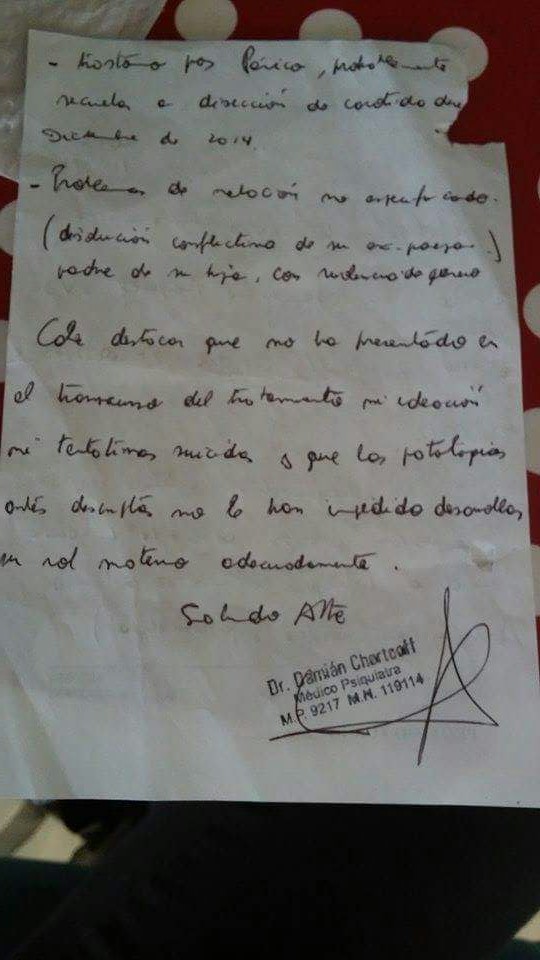 - trastorno por Pánico, probablemente
secuela a disección de carótida de
Diciembre de 2014.
- Problemas de relación no especificado.
(disolución conflictiva de su ex-pareja)
padre de su hija, con violencia de género
Cabe destacar que no ha presentado en
el transcurso del tratamiento ni ideación
ni tentativas suicidas y que las patologías
antes descriptas no le han impedido desarrollar
su rol materno adecuadamente.
Saludo Atte
Dr. Damián Chertcoff
Médico Psiquiatra
M.P. 9217 M.N. 119114